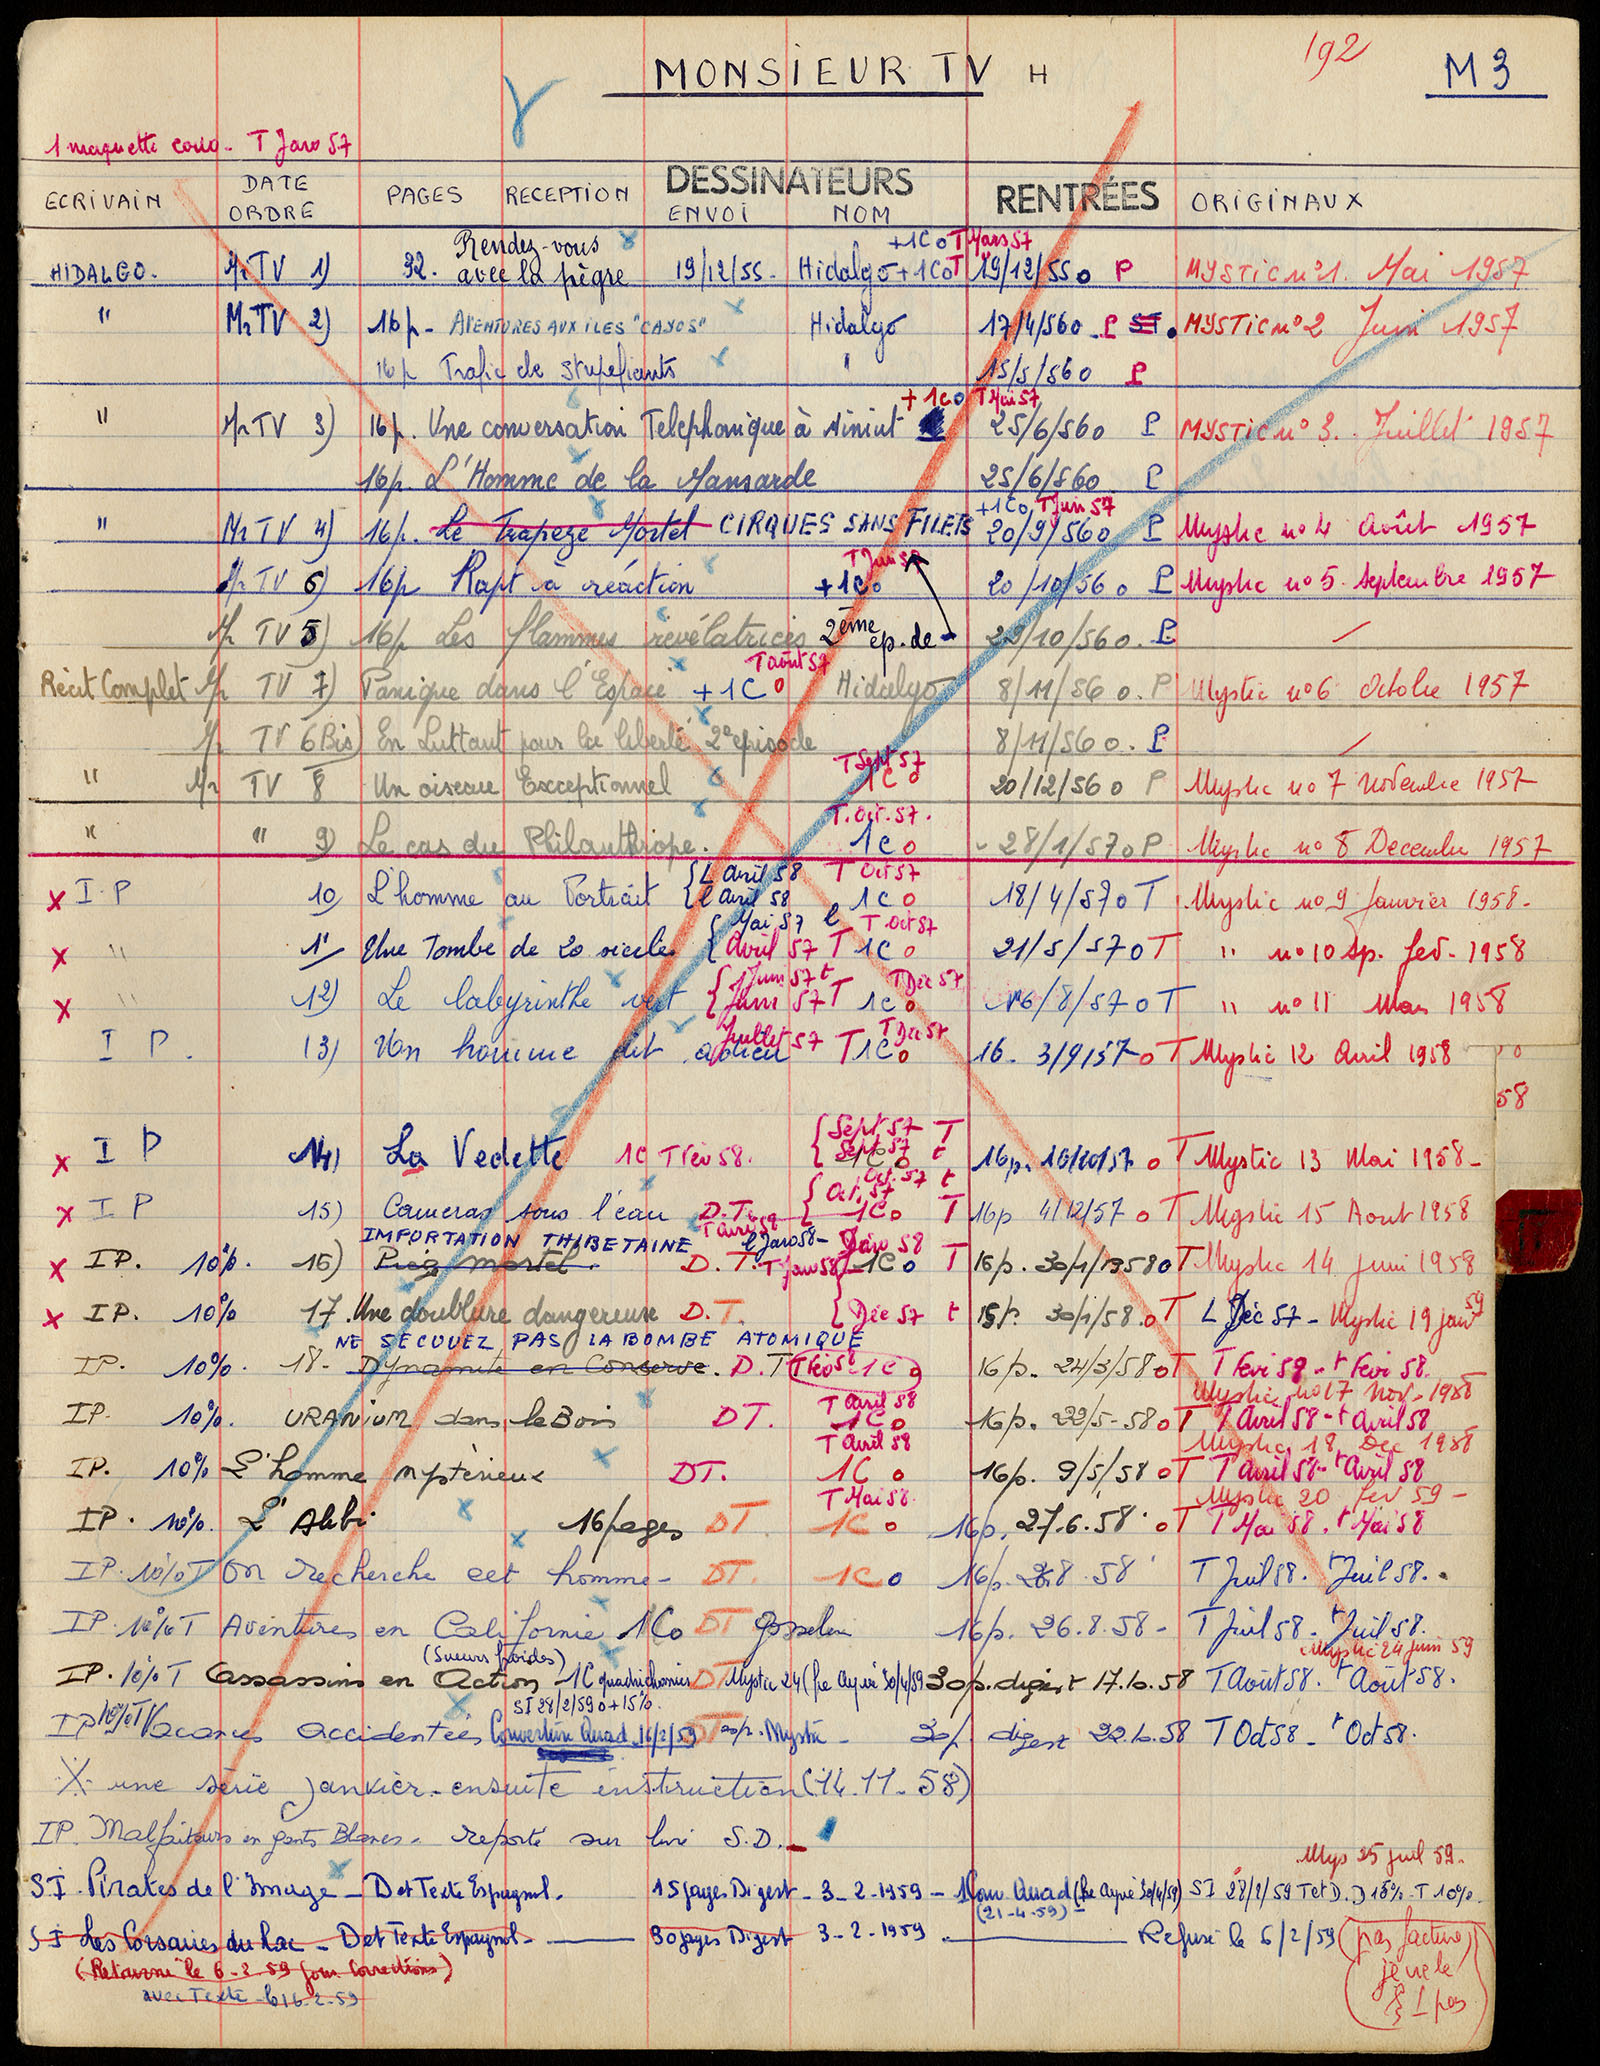 MONSIEUR TV H
192
M3
1 maquette T Janv 57
ECRIVAIN DATE ORDRE PAGES RECEPTION DESSINATEURS ENVOI NOM RENTRÉES ORIGINAUX
+1C o T Mars 57
HIDALGO. Mr TV 1) 32. Rendez-vous avec la pègre 19/12/55- Hidalgo +1C o T 19/12/55 o P MYSTIC n°1. Mai 1957
" Mr TV 2) 16p- AVENTURES AUX ILES "CAYOS" Hidalgo 17/4/56 o P MYSTIC n°2 Juin 1957
16p Trafic de Stupefiants " 15/5/56 o P
+1C o T Mai 57
" Mr TV 3) 16p. Une conversation Telephonique à Minuit 25/6/56 o P MYSTIC n° 3. Juillet 1957
16p. L'Homme de la Mansarde 25/6/56 o P
+1C o T Juin 57
" Mr TV 4) 16p. Le Trapeze Mortel CIRQUES SANS FILETS 20/9/56 o P Mystic n° 4 Août 1957
T Juin 57
Mr TV 6) 16p Rapt à réaction +1C o 20/10/56 o P Mystic n° 5 Septembre 1957
Mr TV 5) 16p Les flammes révélatrices 2ème ep. de 22/10/56 o. P
T août 57
Récit Complet Mr TV 7) Panique dans l'Espace +1C o Hidalgo 8/11/56 o. P Mystic n° 6 Octobre 1957
Mr TV 6 Bis) En Luttant pour la liberté 2e episode 8/11/56 o. P
T Sept 57
" Mr TV 8 Un oiseau Exceptionnel 1C o 20/12/56 o P Mystic n° 7 Novembre 1957
T. Oct. 57.
" " 9) Le cas du Philanthrope. 1C o 28/1/57 o P Mystic n° 8 Decembre 1957
x I.P 10) L'homme au Portrait { L avril 58 l avril 58 T Oct 57 1C o 18/4/57 o T Mystic n° 9 Janvier 1958-
x " 11 Une Tombe de 20 siecles { Mai 57 t Avril 57 T T Oct 57 1C o 21/5/57 o T " n° 10 sp. fev- 1958
x " 12) Le labyrinthe vert { Juin 57 t Juin 57 T T Dec 57 1C o 16/8/57 o T " n° 11 Mars 1958
I P. 13) Un homme dit adieu Juillet 57 T T Dec 57 1C o 16- 3/9/57 o T Mystic 12 Avril 1958
58
x I P 14) La Vedette 1C T Fev 58. { Sept 57 T Sept 57 t 1C o 16p. 10/10/57 o T Mystic 13 Mai 1958-
x I P 15) Cameras sous l'eau D.T. { Oct. 57 t Oct. 57 T 1C o 16p 4/12/57 o T Mystic 15 Aout 1958
IMPORTATION THIBETAINE
x IP. 10%. 16) Piège mortel. D.T. T Janv 58 l Janv 58- Janv 58 1C o T 16p. 30/1/1958 o T Mystic 14 Juin 1958
x IP. 10% 17. Une doublure dangereuse D.T. { Dec 57 t 15p. 30/1/58. o T L Déc 57- Mystic 19 janv 59
NE SECOUEZ PAS LA BOMBE ATOMIQUE
IP. 10%. 18- Dynamite en Conserve. D.T T Fev 58 1C o 16p. 24/3/58 o T T Fevr 58- t Fevr 58.
Mystic n° 17 Nov- 1958
T Avril 58
IP. 10%. URANIUM dans le Bois DT. 1C o 16p. 22/5-58 o T T Avril 58- t Avril 58
Mystic 18 Dec 1958
T Avril 58
IP. 10% L'homme Mysterieux DT. 1C o 16p. 9/5/58 o T T Avril 58- t Avril 58
Mystic 20 Fev 59-
T Mai 58.
IP. 10%. L'Alibi 16 pages DT. 1C o 16p. 27.6.58. o T T Mai 58. t Mai 58
IP. 10% T On recherche cet homme- DT. 1C o 16p. 28.8.58 T Juil 58. t Juil 58.
IP. 10% T Aventures en Californie 1C o DT Gosselin 16p. 26.8.58- T Juil 58- t Juil 58.
(Sueurs froides) Mystic 24 Juin 59
IP. 10% T Assassins en Action- 1C quadrichromies DT Mystic 24 30/4/59 30p. digest 17.10.58 T Août 58. t Août 58.
SI 28/2/59 o +15%.
IP 10% T Vacances accidentées Couverture Quad 16/2/59 DT Mystic- 30p digest 22.10.58 T Oct 58- t Oct 58.
X- une série janvier- ensuite instruction (14.11-58)
IP. Malfaiteurs en gants Blancs- reporté sur livre S.D.-
Mys 25 juil 59.
SI. Pirates de l'Image- D et Texte Espagnol. 15 pages Digest- 3-2-1959- 1 Couv Quad 30/4/59) SI 28/2/59 T et D. D 15%- T 10%.
(21-4-59)
SI Les Corsaires du Lac- D et Texte Espagnol- 30 pages Digest 3-2-1959 Refusé le 6/2/59 (pas facturé)
(Retourné le 6-2-59 pour Corrections) je ne le
avec Texte le 16-2-59